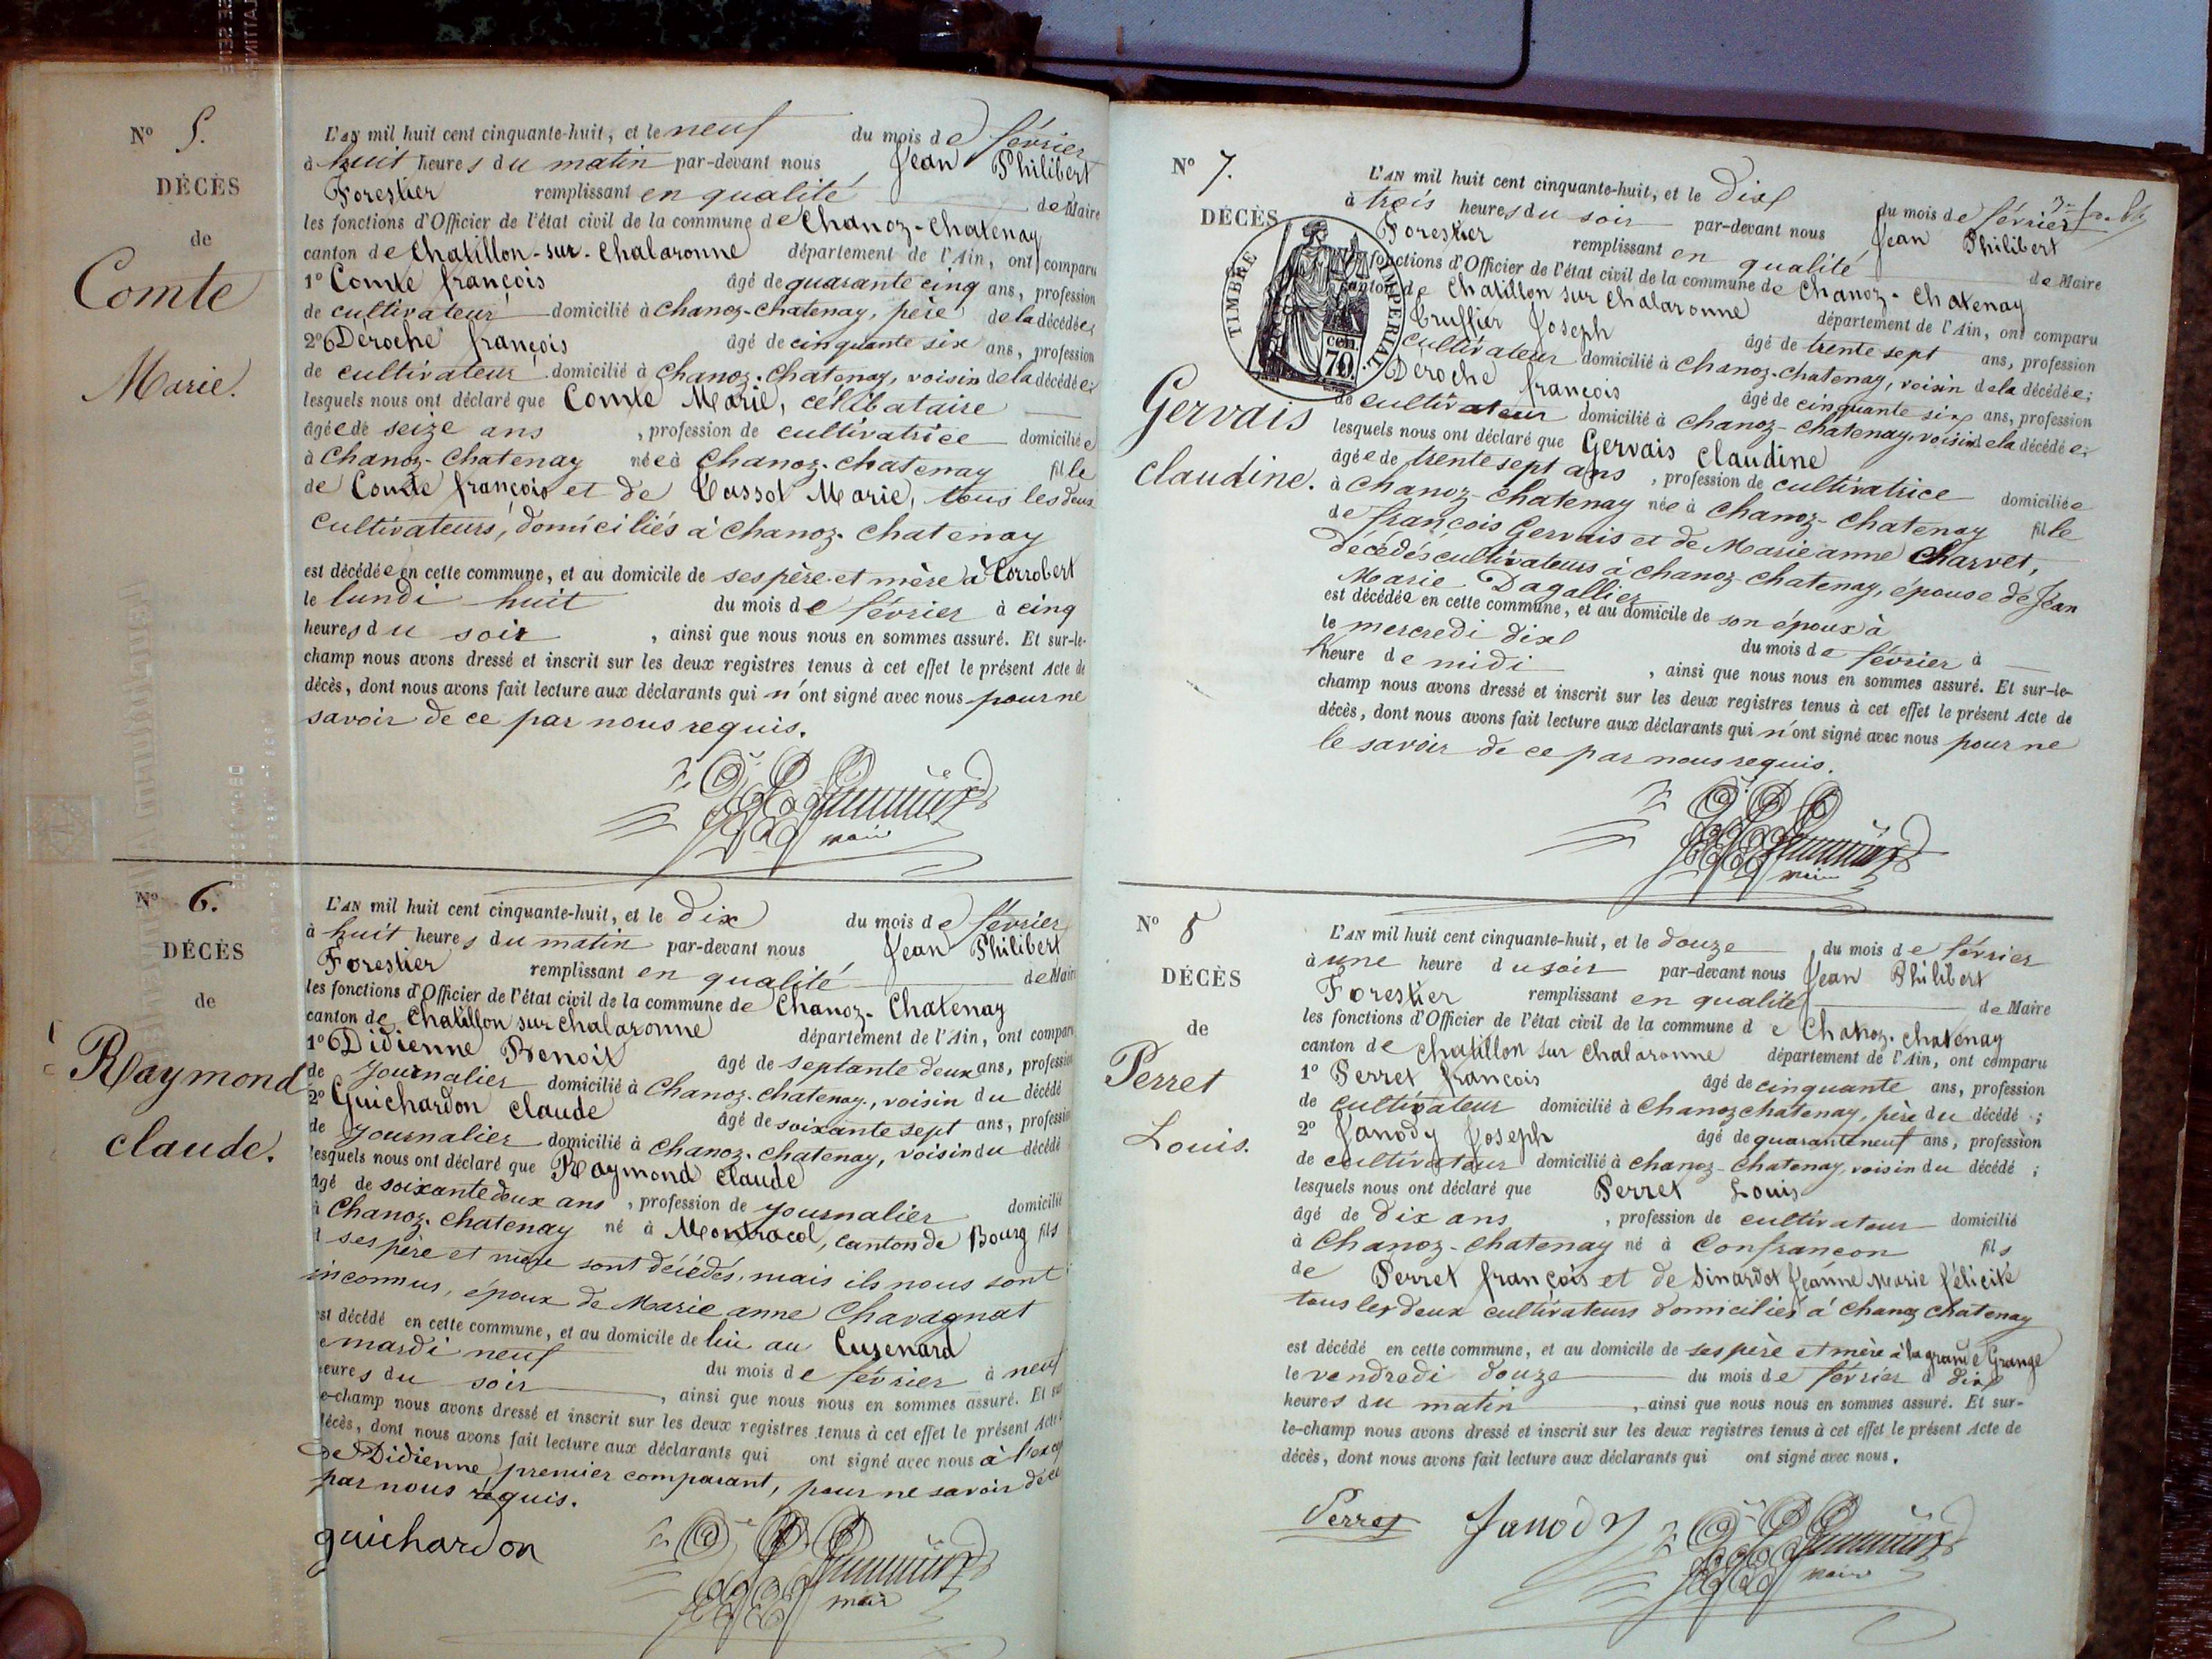 N° 5.
DÉCÈS
de
Comte
Marie.
L'AN mil huit cent cinquante-huit, et le neuf du mois de février
à huit heures du matin par-devant nous Jean Philibert
Forestier remplissant en qualité de Maire
les fonctions d'Officier de l'état civil de la commune de Chanoz-Chatenay
canton de Chatillon-sur-Chalaronne département de l'Ain, ont comparu
1° Comte françois âgé de quarante cinq ans, profession
de cultivateur domicilié à Chanoz-Chatenay, père de la décédée;
2° Déroche françois âgé de cinquante six ans, profession
de cultivateur domicilié à Chanoz-Chatenay, voisin de la décédée;
lesquels nous ont déclaré que Comte Marie, célibataire
âgée de seize ans , profession de cultivatrice domiciliée
à Chanoz-Chatenay née à Chanoz-Chatenay fille
de Comte françois et de Cassot Marie, tous les deux
cultivateurs, domiciliés à Chanoz-Chatenay
est décédée en cette commune, et au domicile de ses père et mère à Corrobert
le lundi huit du mois de février à cinq
heures du soir , ainsi que nous nous en sommes assuré. Et sur-le-
champ nous avons dressé et inscrit sur les deux registres tenus à cet effet le présent Acte de
décès, dont nous avons fait lecture aux déclarants qui n'ont signé avec nous pour ne
savoir de ce par nous requis.
maire
N° 6.
DÉCÈS
de
Raymond
claude.
L'AN mil huit cent cinquante-huit, et le dix du mois de février
à huit heures du matin par-devant nous Jean Philibert
Forestier remplissant en qualité de Maire
les fonctions d'Officier de l'état civil de la commune de Chanoz-Chatenay
canton de Chatillon sur chalaronne département de l'Ain, ont comparu
1° Didienne Benoit âgé de septante deux ans, profession
de journalier domicilié à Chanoz-chatenay, voisin du décédé
2° Guichardon claude âgé de soixante sept ans, profession
de journalier domicilié à Chanoz-chatenay, voisin du décédé
lesquels nous ont déclaré que Raymond claude
âgé de soixante deux ans , profession de journalier domicilié
à Chanoz-Chatenay né à Montracol, canton de Bourg fils
d ses père et mère sont décédés, mais ils nous sont
inconnus, époux de Marie anne Chavagnat
est décédé en cette commune, et au domicile de lui au Cusenard
le mardi neuf du mois de février à neuf
heures du soir , ainsi que nous nous en sommes assuré. Et sur
le-champ nous avons dressé et inscrit sur les deux registres tenus à cet effet le présent Acte de
décès, dont nous avons fait lecture aux déclarants qui ont signé avec nous à l'excep
de Didienne, premier comparant, pour ne savoir de ce
par nous requis.
guichardon
maire
N° 7.
DÉCÈS
Gervais
claudine.
TIMBRE IMPERIAL
cen.
70.
L'AN mil huit cent cinquante-huit, et le dix du mois de février
à trois heures du soir par-devant nous Jean Philibert
Forestier remplissant en qualité de Maire
fonctions d'Officier de l'état civil de la commune de Chanoz-Chatenay
canton de Chatillon sur Chalaronne département de l'Ain, ont comparu
Truffier Joseph âgé de trente sept ans, profession
cultivateur domicilié à Chanoz-Chatenay, voisin de la décédée;
Déroche françois âgé de cinquante six ans, profession
de cultivateur domicilié à Chanoz-Chatenay, voisin de la décédée;
lesquels nous ont déclaré que Gervais claudine
âgée de trente sept ans , profession de cultivatrice domiciliée
à Chanoz-Chatenay née à Chanoz-Chatenay fille
de françois Gervais et de Marie anne Charvet,
décédés cultivateurs à Chanoz-Chatenay, épouse de Jean
Marie Dagallier
est décédée en cette commune, et au domicile de son époux à
le mercredi dix du mois de février à
heure de midi , ainsi que nous nous en sommes assuré. Et sur-le-
champ nous avons dressé et inscrit sur les deux registres tenus à cet effet le présent Acte de
décès, dont nous avons fait lecture aux déclarants qui n'ont signé avec nous pour ne
le savoir de ce par nous requis.
maire
N° 8
DÉCÈS
de
Perret
Louis.
L'AN mil huit cent cinquante-huit, et le douze du mois de février
à une heure du soir par-devant nous Jean Philibert
Forestier remplissant en qualité de Maire
les fonctions d'Officier de l'état civil de la commune de Chanoz-Chatenay
canton de Chatillon sur Chalaronne département de l'Ain, ont comparu
1° Perret françois âgé de cinquante ans, profession
de cultivateur domicilié à Chanoz chatenay, père du décédé ;
2° Janody Joseph âgé de quarante neuf ans, profession
de cultivateur domicilié à Chanoz-Chatenay, voisin du décédé ;
lesquels nous ont déclaré que Perret Louis
âgé de dix ans , profession de cultivateur domicilié
à Chanoz-Chatenay né à Confrançon fils
de Perret françois et de Sinardet Jeanne Marie félicité
tous les deux cultivateurs domiciliés à Chanoz chatenay
est décédé en cette commune, et au domicile de ses père et mère à la grande Grange
le vendredi douze du mois de février à dix
heures du matin , ainsi que nous nous en sommes assuré. Et sur-
le-champ nous avons dressé et inscrit sur les deux registres tenus à cet effet le présent Acte de
décès, dont nous avons fait lecture aux déclarants qui ont signé avec nous.
Perret Janody
maire